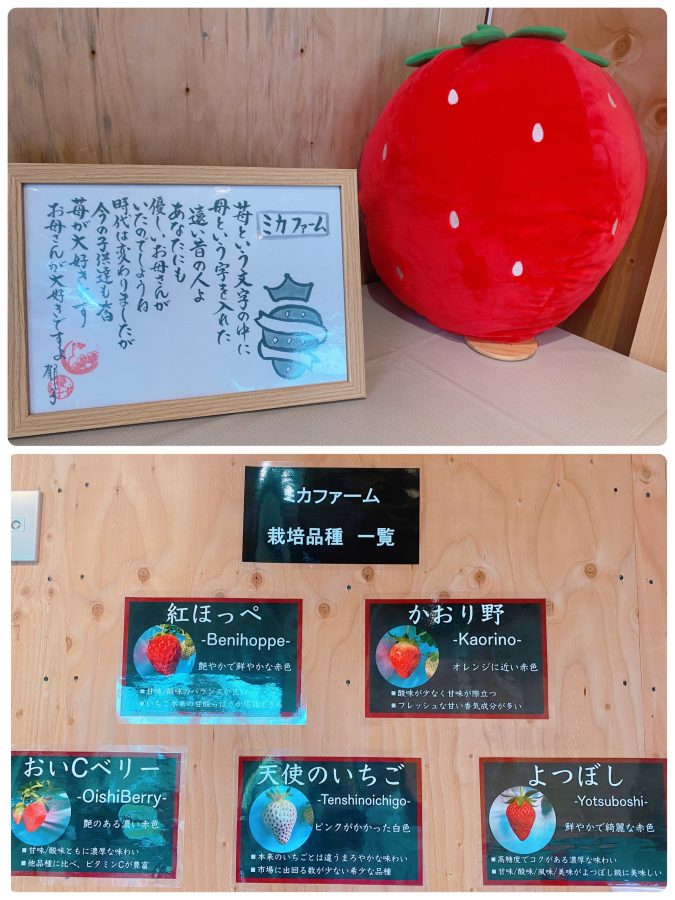 ミカファーム
苺という文字の中に
母という字を入れた
遠い昔の人よ
あなたにも
優しいお母さんが
いたのでしょうね
時代は変わりましたが
今の子供達も皆
苺が大好きです
お母さんが大好きですよ
ミカファーム
栽培品種 一覧
紅ほっぺ
-Benihoppe-
艶やかで鮮やかな赤色
■甘味/酸味のバランスが良い
■いちご本来の甘酸っぱさが堪能できる
かおり野
-Kaorino-
オレンジに近い赤色
■酸味が少なく甘味が際立つ
■フレッシュな甘い香気成分が多い
おいCベリー
-OishiBerry-
艶のある濃い赤色
■甘味/酸味ともに濃厚な味わい
■他品種に比べ、ビタミンCが豊富
天使のいちご
-Tenshinoichigo-
ピンクがかかった白色
■本来のいちごとは違うまろやかな味わい
■市場に出回る数が少ない希少な品種
よつぼし
-Yotsuboshi-
鮮やかで綺麗な赤色
■高糖度でコクがある濃厚な味わい
■甘味/酸味/風味/美味がよつぼし級に美味しい